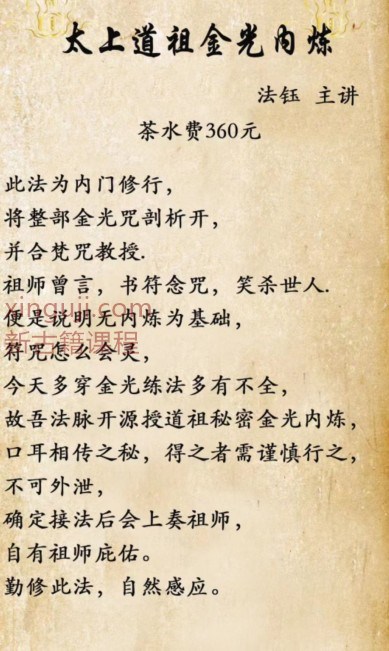 太上道祖金光内炼
法钰 主讲
茶水费360元
此法为内门修行，
将整部金光咒剖析开，
并合梵咒教授.
祖师曾言，书符念咒，笑杀世人.
便是说明无内炼为基础，
符咒怎么会灵，
今天多穿金光练法多有不全，
故吾法脉开源授道祖秘密金光内炼，
口耳相传之秘，得之者需谨慎行之，
不可外泄，
确定接法后会上奏祖师，
自有祖师庇佑。
勤修此法，自然感应。
xinguji.com
新古籍课程